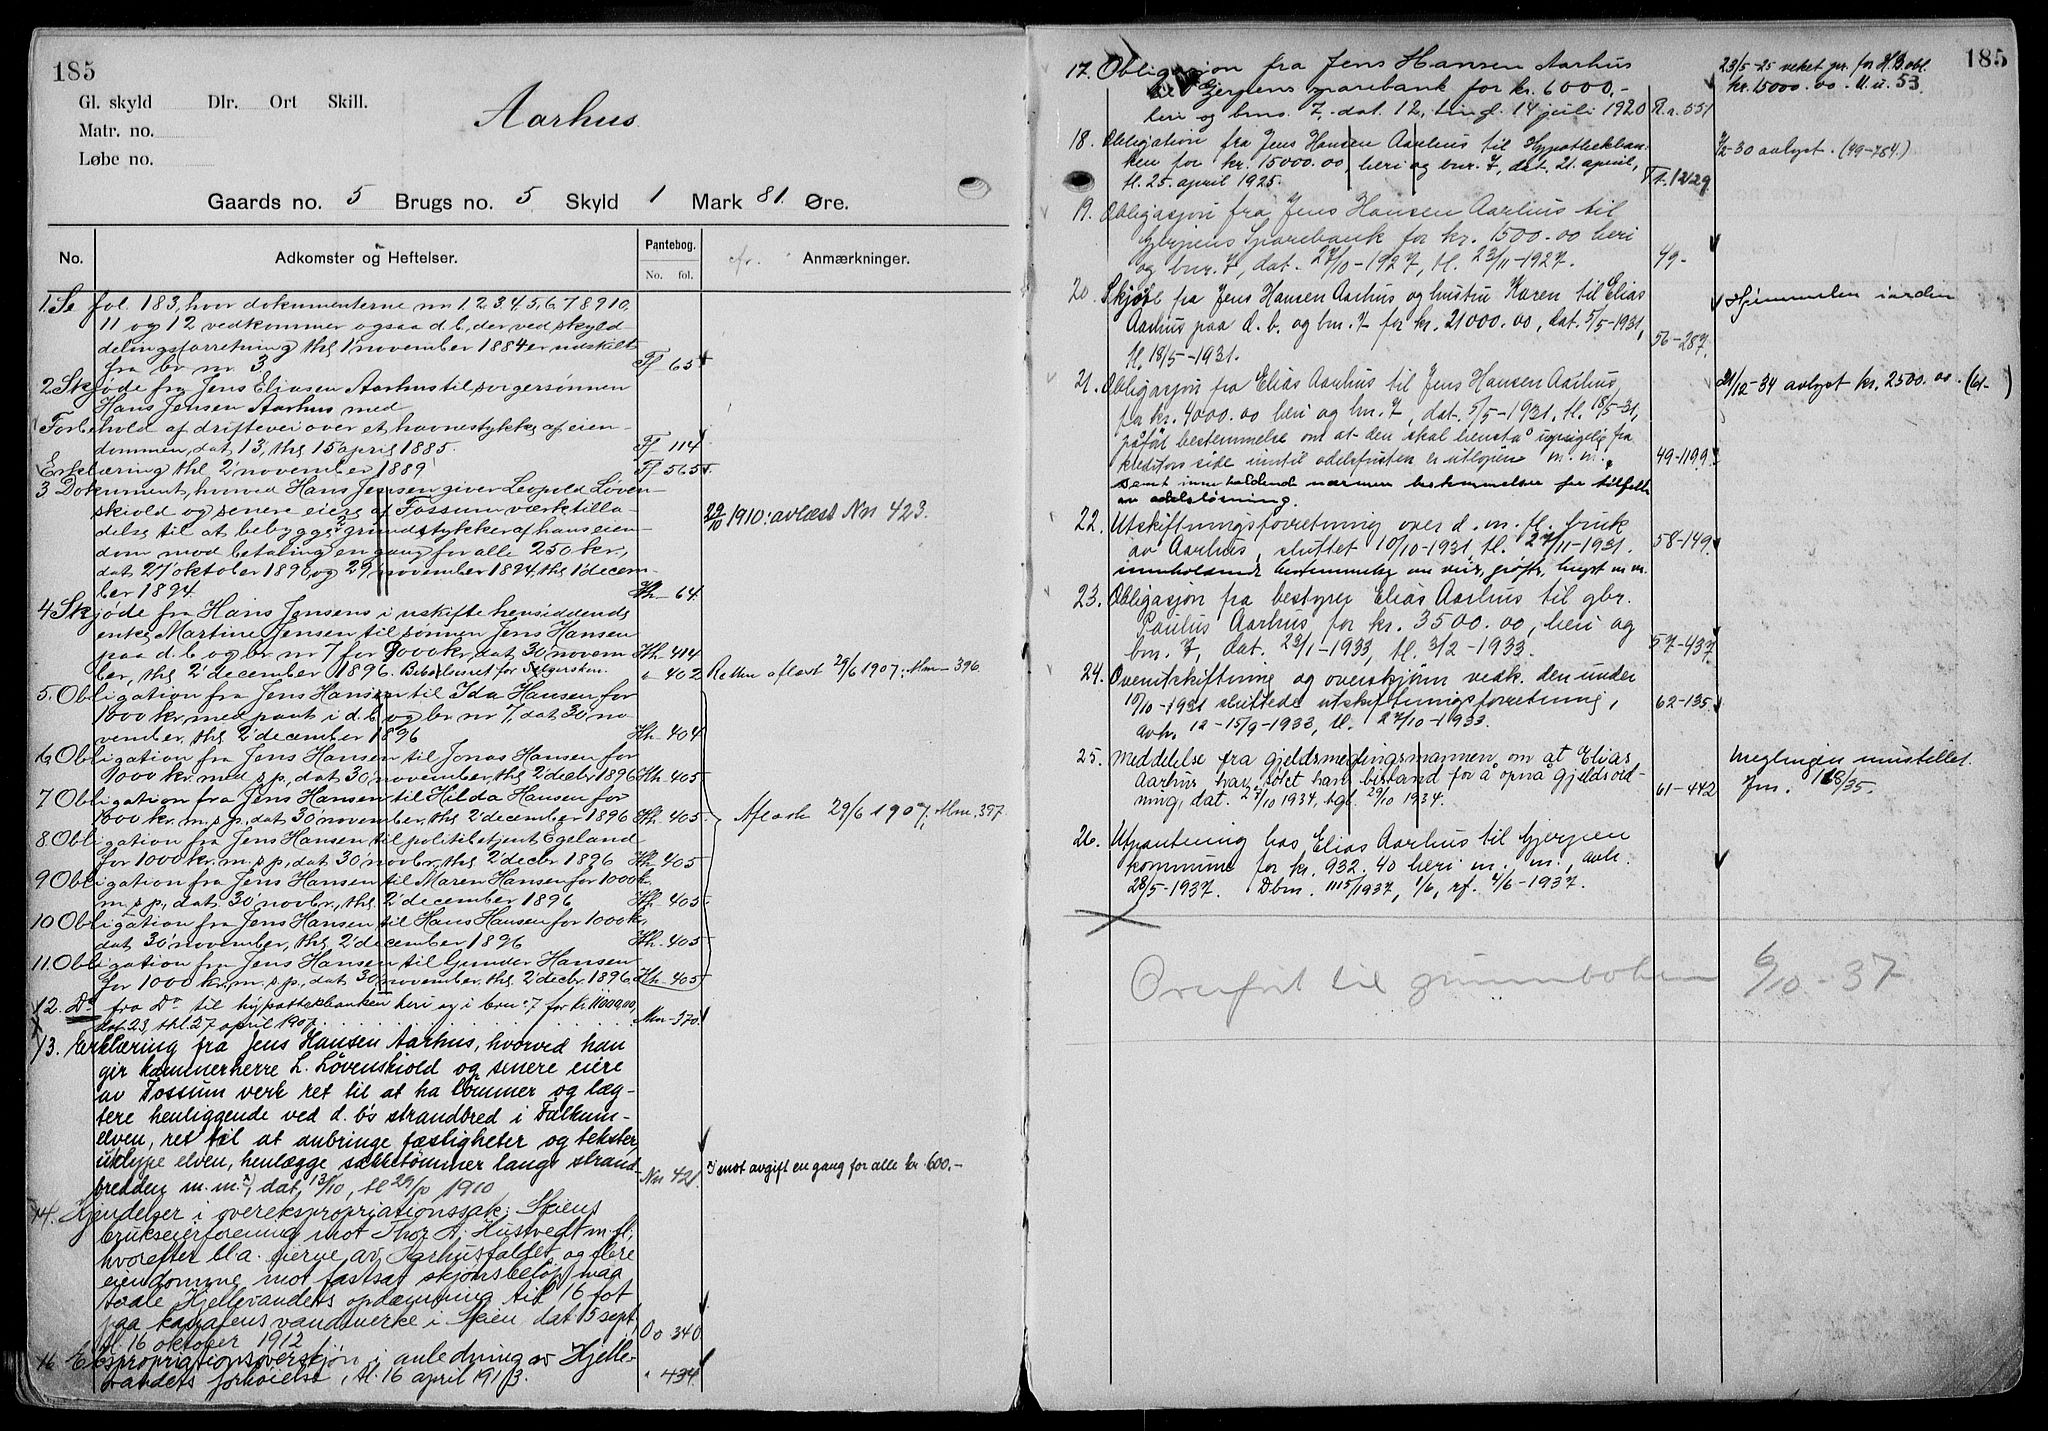 185
Gl. skyld Dlr. Ort Skill.
Matr. no.
Løbe no.
Aarhus
Gaards no. 5 Brugs no. 5 Skyld 1 Mark 81 Øre.
No. Adkomster og Heftelser. Pantebog. No. fol. Anmærkninger.
1. Se fol. 183, hvor dokumenterne nr 1 2 3, 4, 5, 6, 7 8 9 10,
11 og 12 vedkommer ogsaa d. b., der ved skyld-
delingsforretning thl 1 november 1884 er udskilt
fra br nr 3. Ff 65
2 Skjøde fra Jens Eliasen Aarhus til svigersønnen
Hans Jensen Aarhus med
Forbehold af driftevei over et havnestykke af eien-
dommen, dat 13, thl 15 april 1885. Ff 114
Erklæring thl 2 november 1889 Ff 565
3 Dokument, hvorved Hans Jensen giver Leopold Løven-
skiold og senere eiere af Fossum værk tilla-
delse til at bebygge 2 grundstykker af hans eien-
dom mod betaling en gang for alle 250 kr.,
dat 27 oktober 1890 og 29 november 1894, thl 1 decem-
ber 1894. Hh 64
29/10 1910: avlæst Nn 423.
4 Skjøde fra Hans Jensens i uskifte hensiddende
enke Martine Jensen til sønnen Jens Hansen
paa d. b. og br nr 7 for 9000 kr, dat 30 novem- Hh 414
ber, thl 2 december 1896. " 402 Retten aflæst 29/6 1907: Mm 396
5. Obligation fra Jens Hansen til Ida Hansen for
1000 kr med pant i d. b. og br nr 7, dat 30 no-
vember, thl 2 december 1896 Hh 404
6 Obligation fra Jens Hansen til Jonas Hansen for
1000 kr. med s. p., dat 30 november, thl 2 decbr 1896 Hh 405
7 Obligation fra Jens Hansen til Hilda Hansen for
1000 kr. m. s. p., dat 30 november, thl 2 december 1896 Hh 405
Aflæst 29/6 1907, Mm. 397
8 Obligation fra Jens Hansen til politibetjent Egeland
for 1000 kr. m. s. p., dat 30 novbr, thl 2 decbr 1896 Hh 405
9 Obligation fra Jens Hansen til Maren Hansen for 1000 k.
m. s. p., dat 30 novbr., thl 2 december 1896 Hh 405
10 Obligation fra Jens Hansen til Hans Hansen for 1000 k,
dat 30 november, thl 2 december 1896 Hh 405
11. Obligation fra Jens Hansen til Gunder Hansen
for 1000 kr, m. s. p., dat 30 november, thl 2 decbr 1896. Hh 405
12. Do fra Do til hypothekbanken heri og i brn 7 for kr. 11000,00,
dat. 23, thl. 27 april 1907. Mm 370
13. Erklæring fra Jens Hansen Aarhus, hvorved han
gir kammerherre L. Løvenskiold og senere eiere
av Fossum verk ret til at ha tømmer og læg-
tere henliggende ved d. b's strandbred i Falkum-
elven, ret til at anbringe fæstigheter og tekster,
utdype elven, henlægge sækketømmer langs strand-
bredden m. m. x), dat. 13/10, tl 29/10 1910 Nn 421 x) mot avgift en gang for alle kr. 600.-
14. Kjendelser i overekspropriationssak: Skiens
brukseierforening mot Thor A. Hustvedt m. fl.,
hvorefter bl. a. eierne av Aarhusfaldet og flere
eiendomme mot fastsat skjønsbeløp maa
taale Hjellevandets opdæmning til 16 fot
paa kanalens vandmerke i Skien, dat. 15 sept.,
tl 16 oktober 1912 Oo 340
16. Ekspropriationsoverskjøn i anledning av Hjelle-
vandets forhøielse, tl. 16 april 1913. " 434
185
17. Obligasjon fra Jens Hansen Aarhus
til Gjerpens sparebank for kr. 6000.-
heri og brns. 7, dat. 12, tingl. 14 juli 1920 R.r. 551
23/5-25 veket pr. for H.B. obl.
kr. 15000.00. U.u. 53
18. Obligation fra Jens Hansen Aarhus til Hypothekban-
ken for kr. 15000.00, heri og bnr. 7, dat. 21. april,
tl. 25. april 1925. T.t. 1229
1/2-30 avlyst. (49-784.)
19. Obligasjon fra Jens Hansen Aarhus til
Gjerpens Sparebank for kr. 1500.00 heri
og bnr. 7, dat. 27/10-1927, tl. 23/11-1927. 49-
20. Skjøte fra Jens Hansen Aarhus og hustru Karen til Elias
Aarhus paa d. b. og bnr. 7 for kr. 21000.00, dat. 5/5-1931,
tl. 18/5-1931. 56-287.
Hjemmelen i orden
21. Obligasjon fra Elias Aarhus til Jens Hansen Aarhus
for kr. 4000.00 heri og bnr. 7, dat. 5/5-1931, tl. 18/5-31,
påført bestemmelse om at den skal henstå uopsigelig fra
kreditors side inntil odelsfristen er utløpen m. m., 49-1199.
samt inneholdende nærmere bestemmelser for tilfelle
av odelsløsning.
21/12-34 avlyst kr. 2500.00. (61- )
22. Utskiftningsforretning over d. m. fl. bruk
av Aarhus, sluttet 10/10-1931, tl. 27/11-1931. 58-149.
inneholdende bestemmelse om veier, grøfter, hugst m m.
23. Obligasjon fra bestyrer Elias Aarhus til gbr.
Paulus Aarhus for kr. 3500.00, heri og
bnr. 7, dat. 23/1-1933, tl. 3/2-1933. 57-437.
24. Overutskiftning og overskjønn vedk. den under
10/10-1931 sluttede utskiftningsforretning,
avh. 12-15/9-1933, tl. 27/10-1933. 62-135.
25. Meddelelse fra gjeldsmeglingsmannen om at Elias
Aarhus har søkt hans bistand for å opnå gjeldsord-
ning, dat. 27/10 1934, tgl. 29/10 1934. 61-442
Meglingen innstillet.
Jnr. 168/35.
26. Utpantning hos Elias Aarhus til Gjerpen
kommune for kr. 932.40 heri m. m., avh.
28/5-1937. Dbnr. 1115/1937, 1/6, rf. 4/6-1937.
Overført til grunnboken 6/10-37